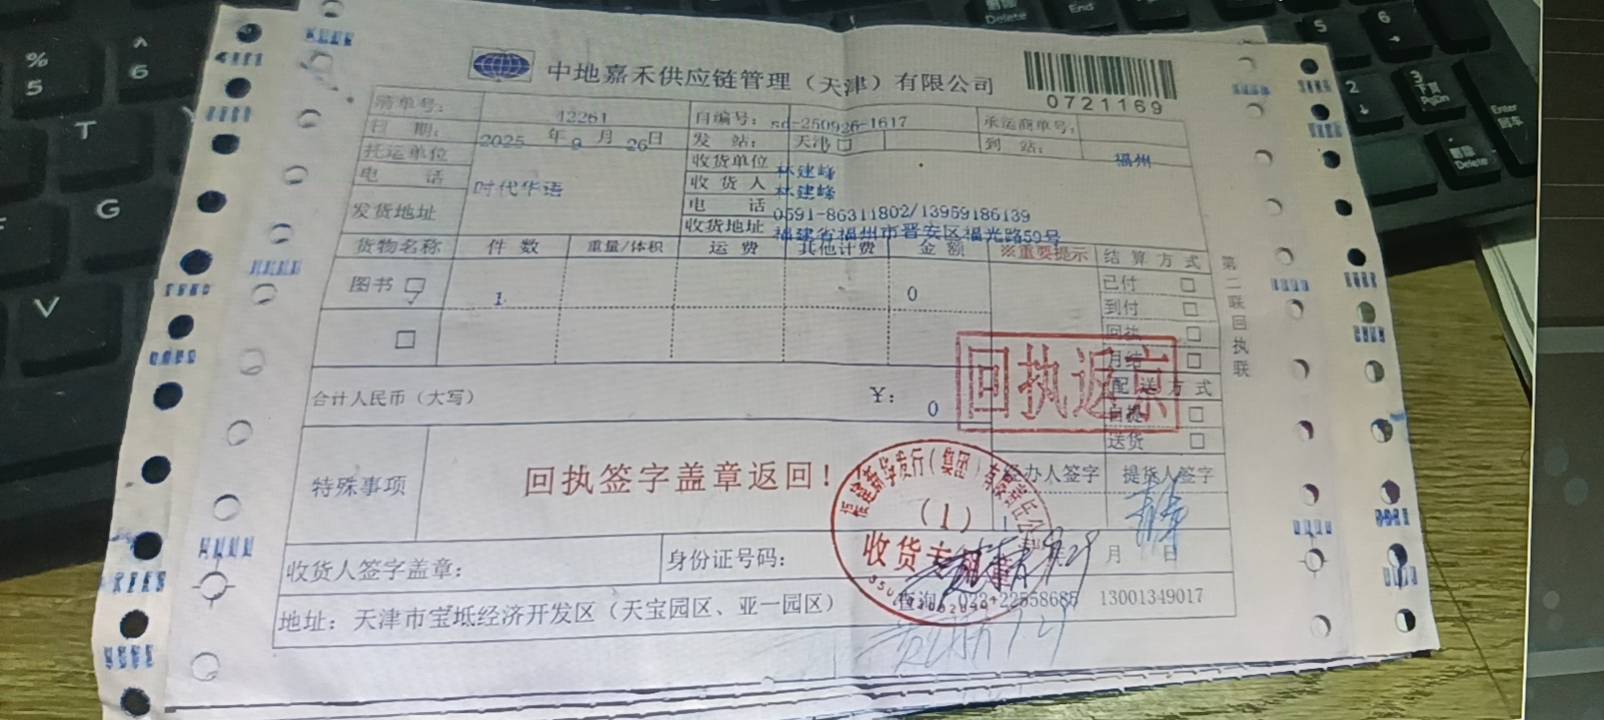 中地嘉禾供应链管理（天津）有限公司
0721169
清单号： 42261 自编号： sd-250926-1617 承运商单号：
日 期： 2025 年 9 月 26日 发 站： 天津 到 站： 福州
托运单位 时代华语 收货单位 林建峰
电 话 收 货 人 林建峰
发货地址 电 话 0591-86311802/13959186139
收货地址 福建省福州市晋安区福光路59号
货物名称 件 数 重量/体积 运 费 其他计费 金 额 ※重要提示 结 算 方 式
图书 1 0 已付
到付
回执
月结
回执返京
配 送 方 式
合计人民币（大写） ￥： 0 自提
送货
第二联回执联
特殊事项 回执签字盖章返回！ 经办人签字 提货人签字
福建新华发行（集团）有限责任公司
（1）
收货专用章
收货人签字盖章： 身份证号码： 月 日
9.29
地址：天津市宝坻经济开发区（天宝园区、亚一园区） 查询：022-22558685 13001349017
Delete
End
%
5
^
6
T
G
V
5
6
2
3
PgDn
Enter
Delete